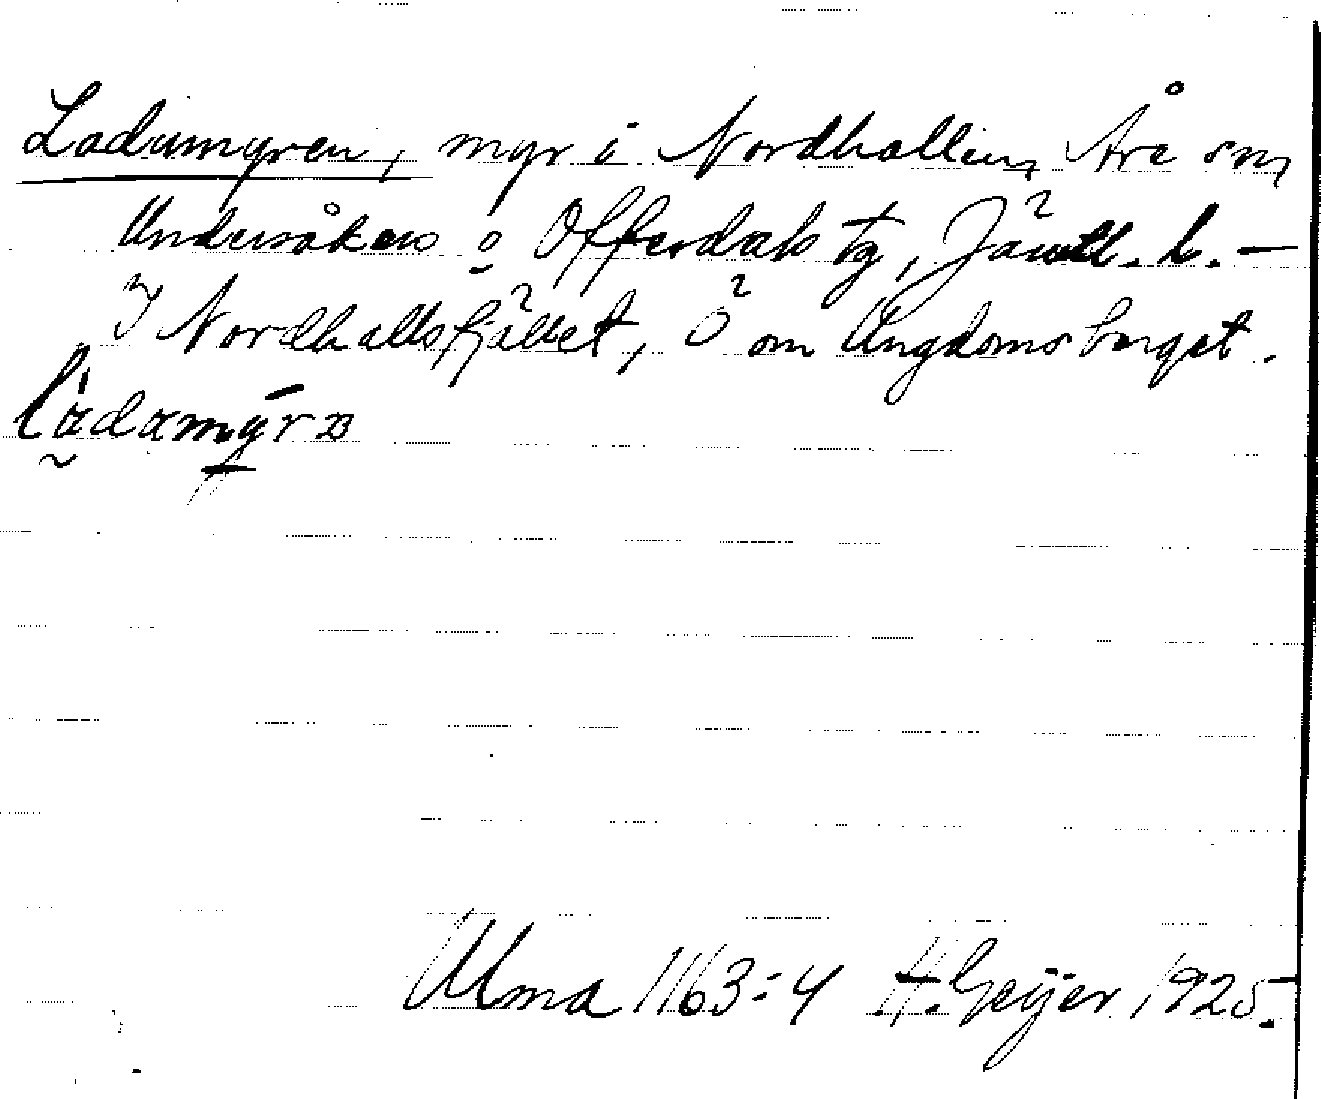 Ladumyren, myr i Nordhallen, Åre sn,
Undersåkers o Offerdals tg, Jämtl. l. —
I Nordhallsfjället, Ö om Ungdomsberget.
Ulma 1163:4 H. Geijer 1925.